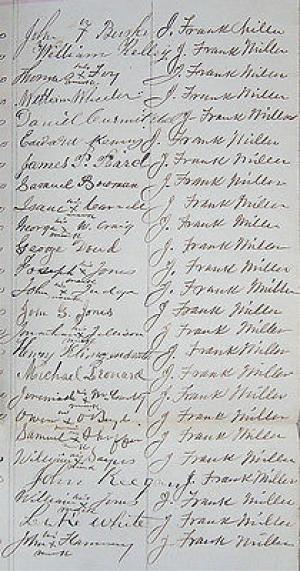 John his F Burke J. Frank Miller
William Kelley J. Frank Miller
Thomas his x Foy mark J. Frank Miller
William Wheeler J. Frank Miller
Daniel J. Frank Miller
Edward Kenny J. Frank Miller
James P. Peard J. Frank Miller
Samuel Bowman J. Frank Miller
Isaac his x mark J. Frank Miller
George his x W. Craig mark J. Frank Miller
George Doud J. Frank Miller
Joseph his x Jones mark J. Frank Miller
John his x mark J. Frank Miller
John G. Jones J. Frank Miller
Jonathan his x mark J. Frank Miller
Henry J. Frank Miller
Michael Leonard J. Frank Miller
Jeremiah his x McCarty mark J. Frank Miller
Owen his x mark J. Frank Miller
Samuel his x mark J. Frank Miller
William his x Sayers mark J. Frank Miller
John J. Frank Miller
William his x Jones mark J. Frank Miller
Luke White J. Frank Miller
John his x Flannery mark J. Frank Miller